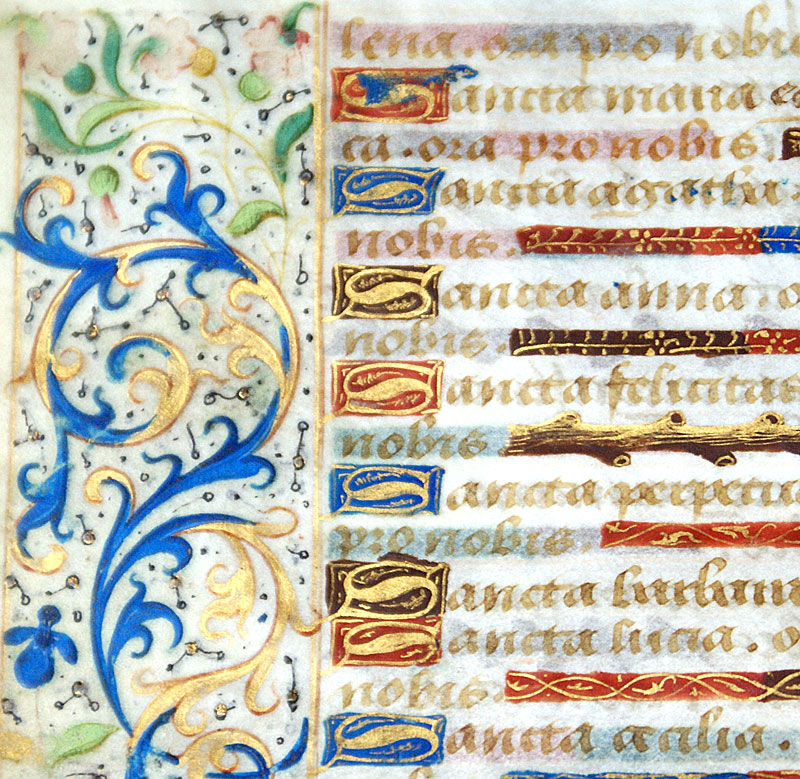 lena. ora pro nobis
Sancta maria
ca. ora pro nobis.
Sancta agatha
nobis.
Sancta anna. o
nobis.
Sancta felicitas
nobis.
Sancta perpetu
pro nobis.
Sancta barbara
Sancta lucia. o
nobis.
Sancta cecilia.